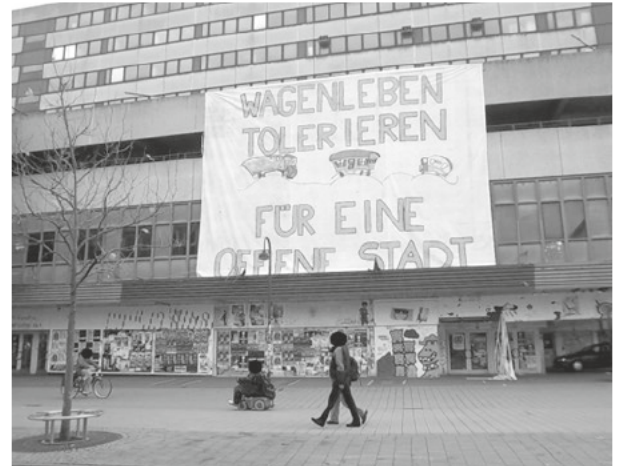 WAGENLEBEN
TOLERIEREN
FÜR EINE
OFFENE STADT